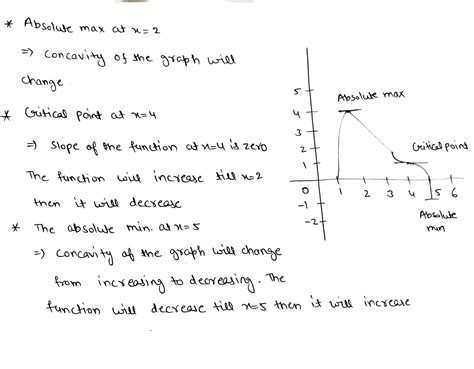 * Absolute max at x=2
⇒ Concavity of the graph will
change.
* Critical point at x=4
⇒ Slope of the function at x=4 is zero
The function will increase till x=2
then it will decrease
* The absolute min. at x=5
⇒ Concavity of the graph will change
from increasing to decreasing. The
function will decrease till x=5 then it will increase
Absolute max
Critical point
Absolute
min
5
4
3
2
1
0
-1
-2
1 2 3 4 5 6